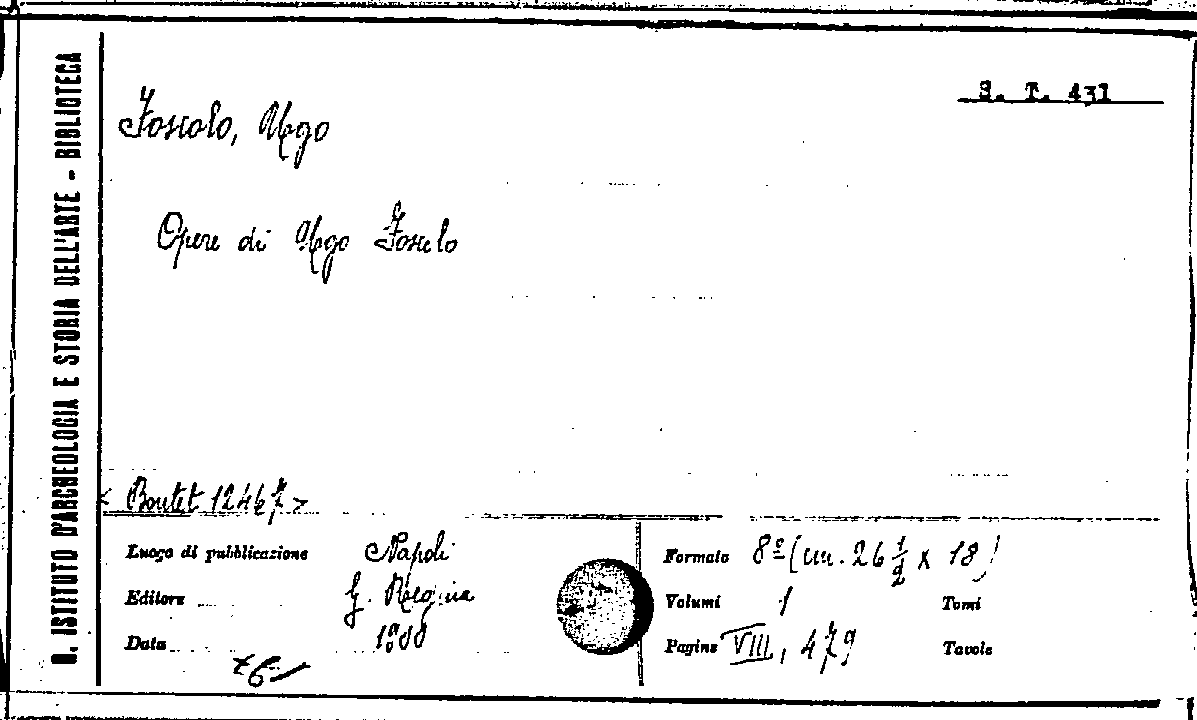 R. ISTITUTO D'ARCHEOLOGIA E STORIA DELL'ARTE - BIBLIOTECA
S. T. 431
Foscolo, Ugo
Opere di Ugo Foscolo
< Boutet 12467 >
Luogo di pubblicazione Napoli
Editore G. Regina
Data
Formato 8º (cm. 26 1/2 x 18)
Volumi 1 Tomi
Pagine VIII, 479 Tavole